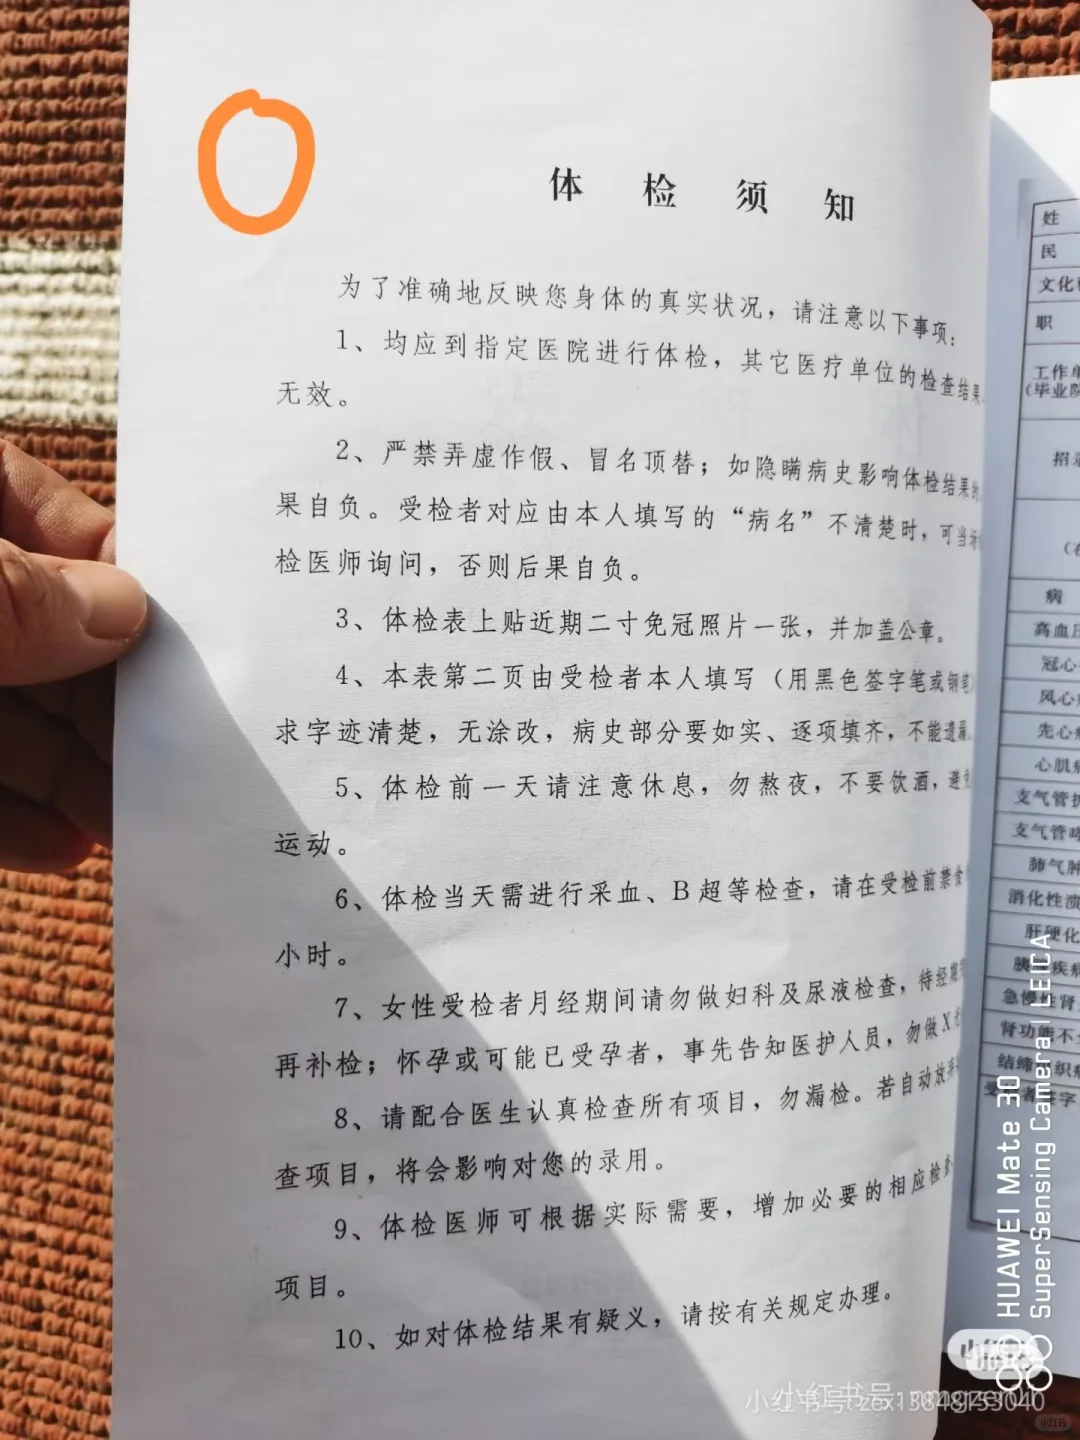 体 检 须 知
为了准确地反映您身体的真实状况，请注意以下事项：
1、均应到指定医院进行体检，其它医疗单位的检查结果
无效。
2、严禁弄虚作假、冒名顶替；如隐瞒病史影响体检结果的
果自负。受检者对应由本人填写的“病名”不清楚时，可当场
检医师询问，否则后果自负。
3、体检表上贴近期二寸免冠照片一张，并加盖公章。
4、本表第二页由受检者本人填写（用黑色签字笔或钢笔
求字迹清楚，无涂改，病史部分要如实、逐项填齐，不能遗漏。
5、体检前一天请注意休息，勿熬夜，不要饮酒，避
运动。
6、体检当天需进行采血、B超等检查，请在受检前禁食
小时。
7、女性受检者月经期间请勿做妇科及尿液检查，待经期
再补检；怀孕或可能已受孕者，事先告知医护人员，勿做X
8、请配合医生认真检查所有项目，勿漏检。若自动放弃
查项目，将会影响对您的录用。
9、体检医师可根据实际需要，增加必要的相应检查
项目。
10、如对体检结果有疑义，请按有关规定办理。
姓
民
文化
职
工作单
(毕业院
招
病
高血压
冠心
风心
先心
心肌
支气管扩
支气管哮
肺气肿
消化性溃
肝硬化
疾病
急慢性肾
肾功能不
结缔组织
签字
HUAWEI Mate 30
SuperSensing Camera LEICA
小红书
小红书号: